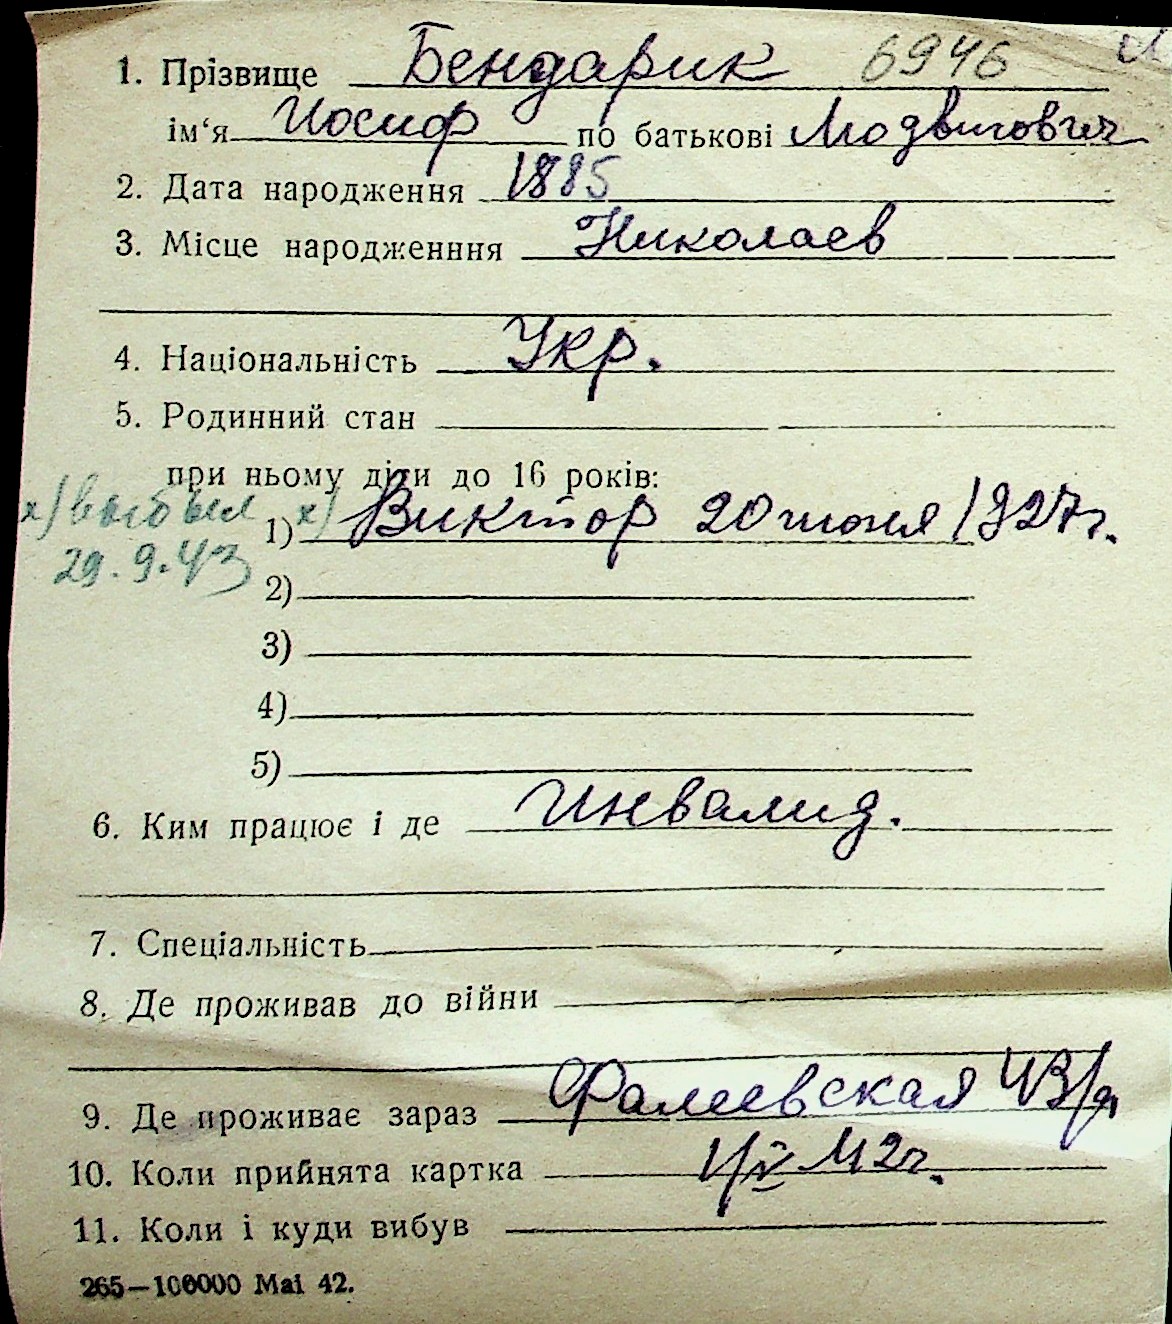 1. Прізвище Бендарик 6946
ім‘я Иосиф по батькові Людвигович
2. Дата народження 1885
3. Місце народженння Николаев
4. Національність Укр.
5. Родинний стан
при ньому діти до 16 років:
х) выбыл х) 1) Виктор 20 июня 1927г.
29.9.43
2)
3)
4)
5)
6. Ким працює і де Инвалид.
7. Спеціальність
8. Де проживав до війни
9. Де проживає зараз Фалеевская 43/а
10. Коли прийнята картка 1/IV 42г.
11. Коли і куди вибув
265—100000 Mai 42.